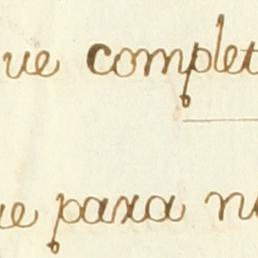 ue complet
ue paxa n